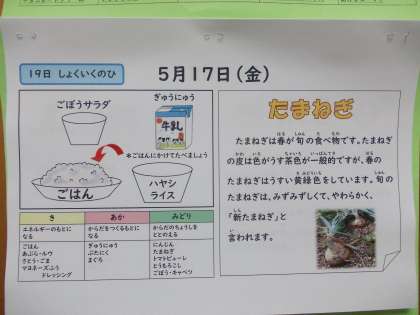 19日 しょくいくのひ
5月17日(金)
ごぼうサラダ
ぎゅうにゅう
牛乳
*ごはんにかけてたべましょう
ごはん
ハヤシ
ライス
き
あか
みどり
エネルギーのもとに
なる
からだをつくるもとに
なる
からだのちょうしを
ととのえる
ごはん
あぶら・ルウ
さとう・ごま
マヨネーズふう
ドレッシング
ぎゅうにゅう
ぶたにく
まぐろ
にんじん
たまねぎ
トマトピューレ
とうもろこし
ごぼう・キャベツ
たまねぎ
たまねぎは春が旬の食べ物です。たまねぎ
の皮は色がうす茶色が一般的ですが、春の
たまねぎはうすい黄緑色をしています。旬の
たまねぎは、みずみずしくて、やわらかく、
「新たまねぎ」と
言われます。